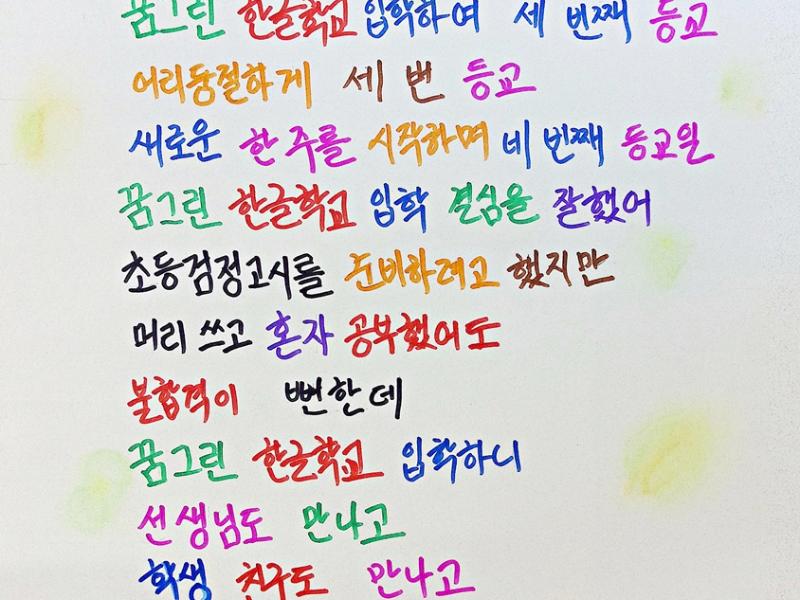 꿈그린 한글학교 입학하여 세 번째 등교
어리둥절하게 세 번 등교
새로운 한 주를 시작하며 네 번째 등교일
꿈그린 한글학교 입학 결심을 잘했어
초등검정고시를 준비하려고 했지만
머리 쓰고 혼자 공부했어도
불합격이 뻔한데
꿈그린 한글학교 입학하니
선생님도 만나고
학생 친구도 만나고